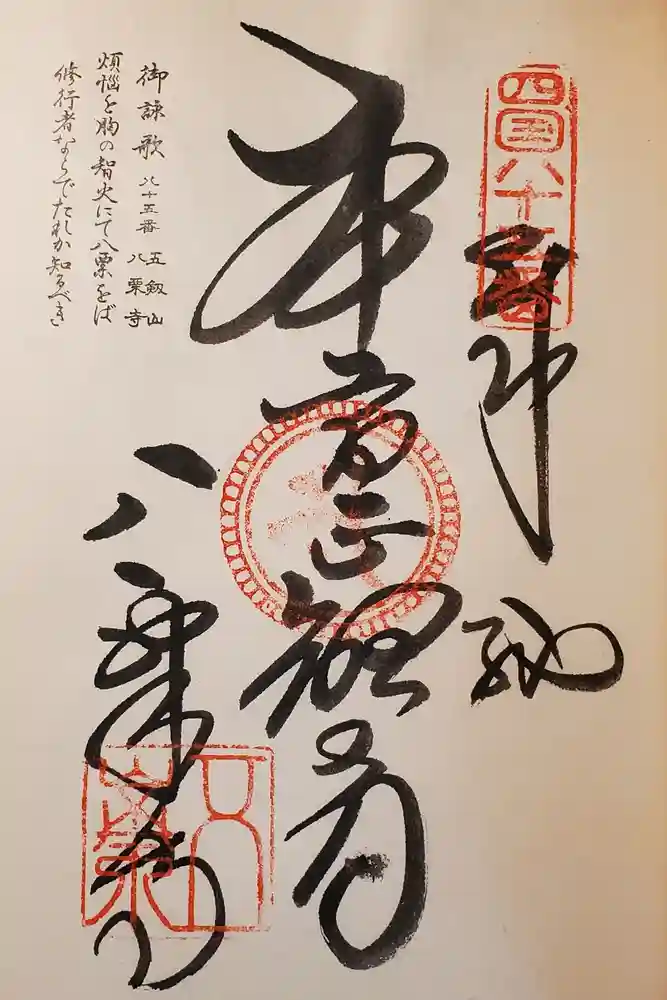 四国八十五番
奉納
本尊正観音
八栗寺
御詠歌 八十五番 五剱山 八栗寺
煩悩を胸の智火にて八栗をば
修行者ならでたれか知るべき